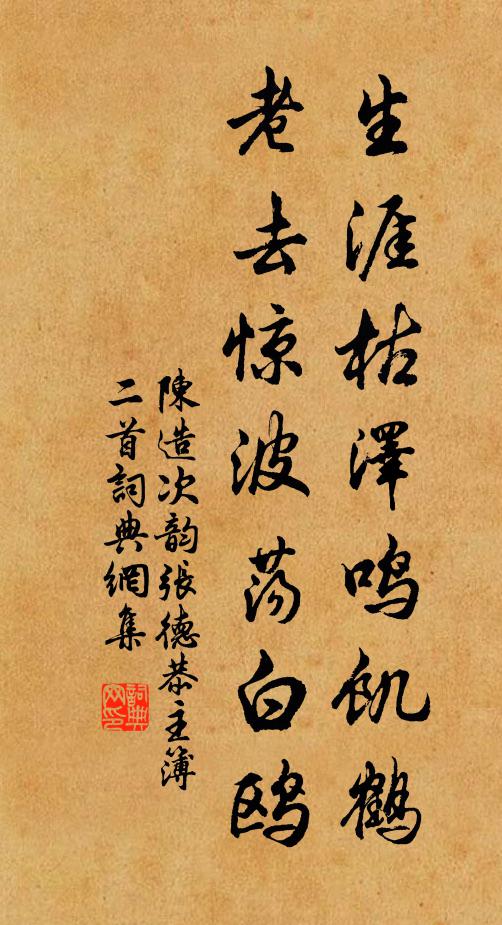 生涯枯澤鸣飢鶴
老去惊波荡白鸥
陳造次韵張德恭主簿
二首詞典網集
詞典
网印